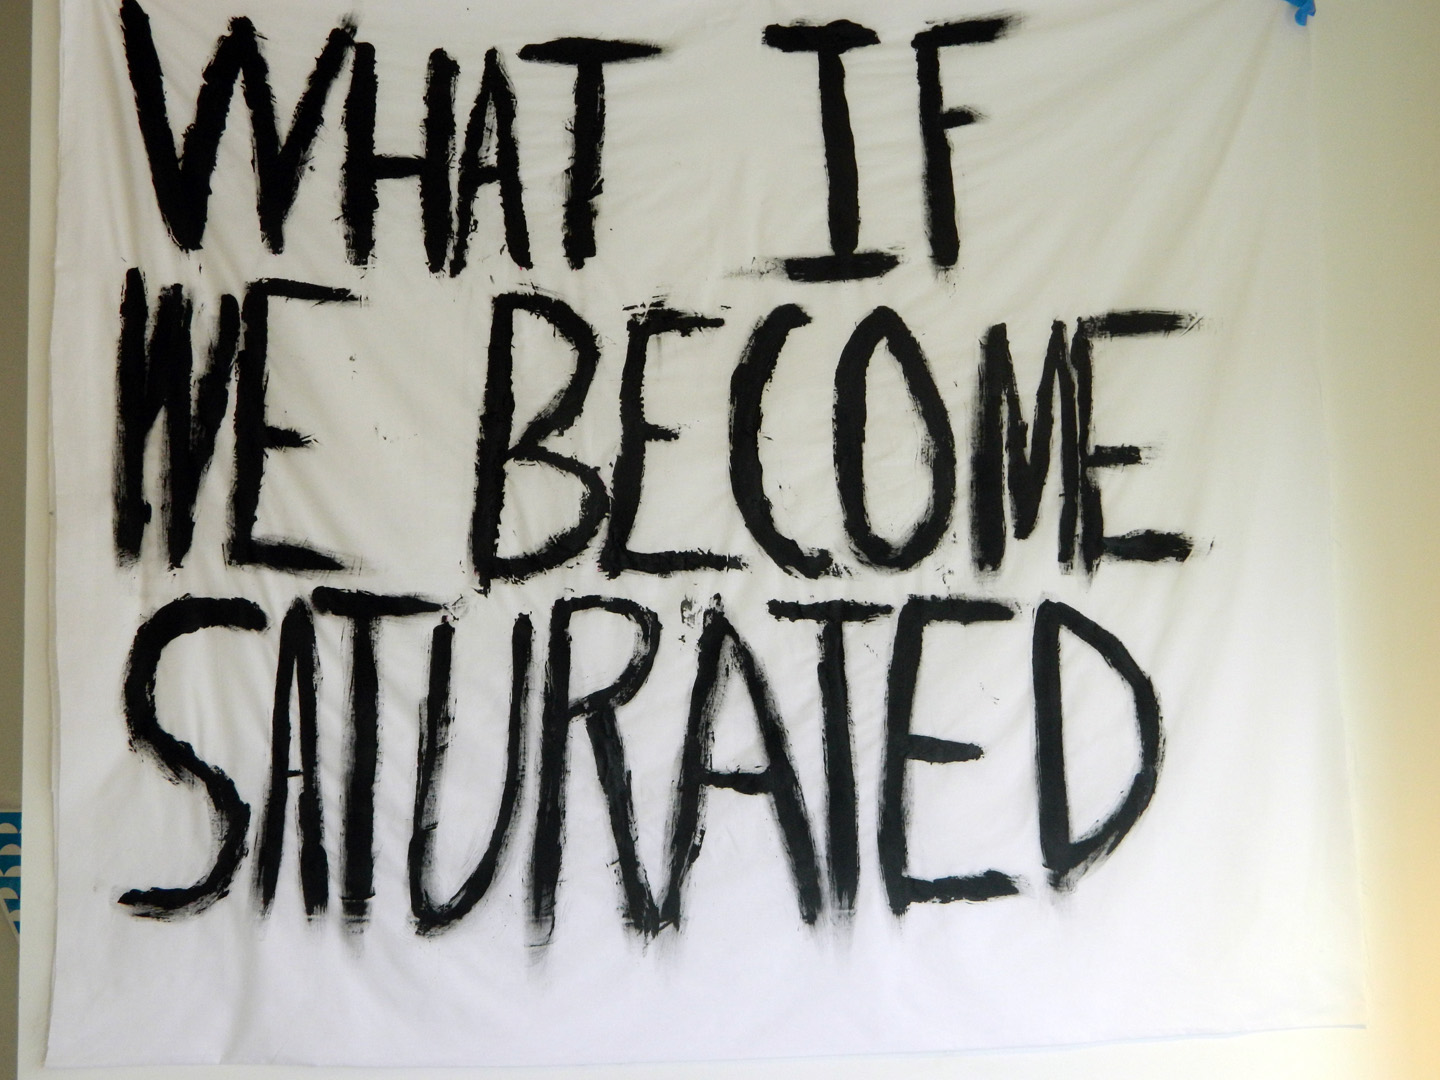 WHAT IF
WE BECOME
SATURATED